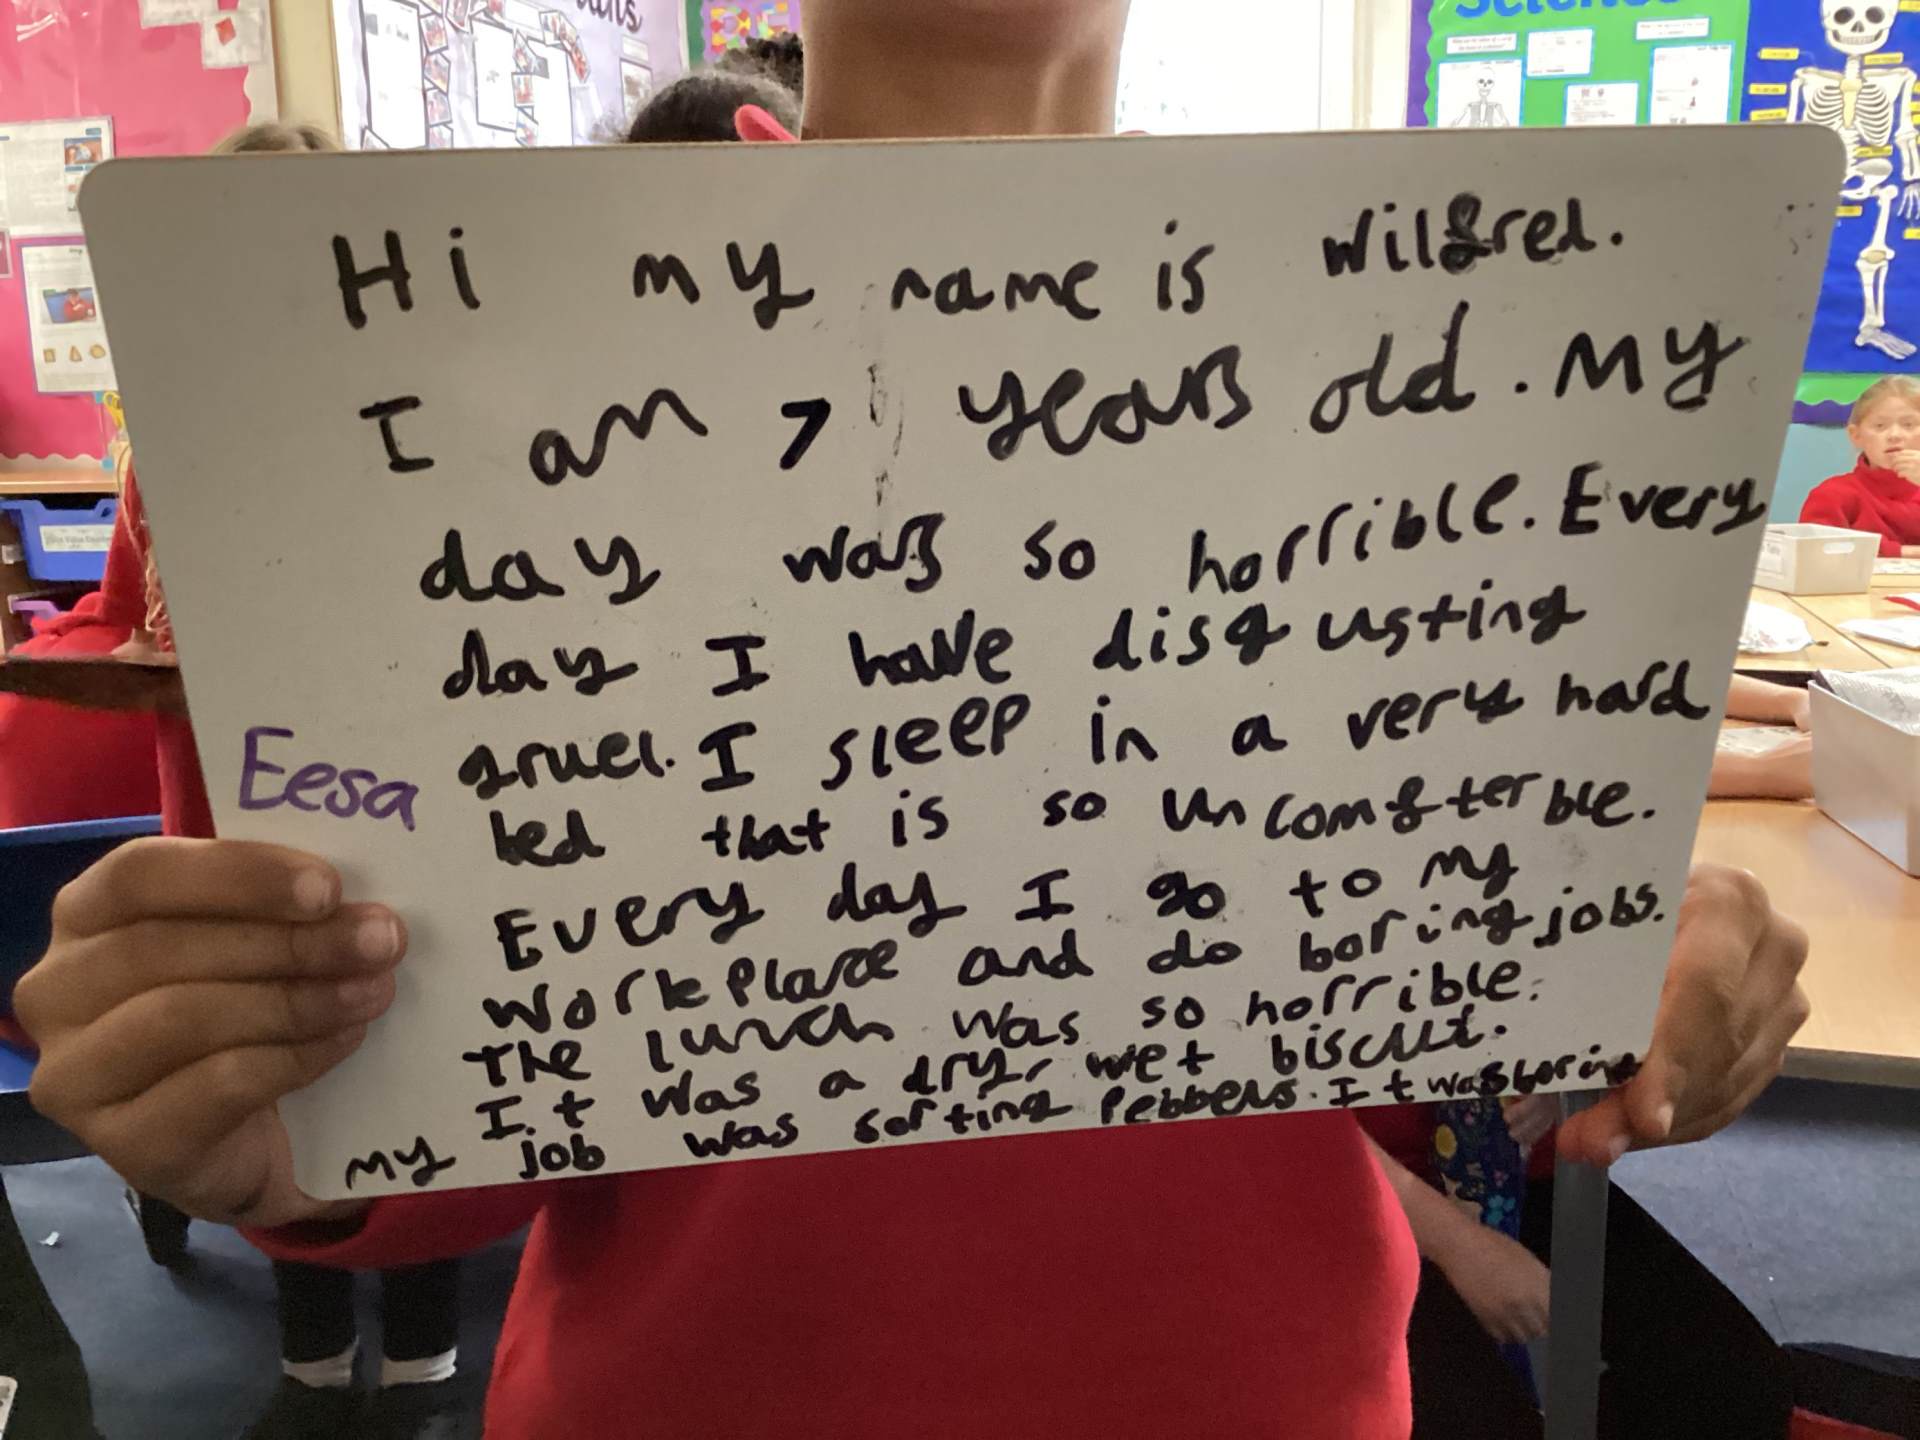 Science
Hi my name is Wilfred.
I am 7 years old. My
day was so horrible. Every
day I have disgusting
gruel. I sleep in a very hard
Eesa
bed that is so uncomfterble.
Every day I go to my
workplace and do boring jobs.
The lunch was so horrible.
It was a dry, wet biscuit.
my job was sorting pebbers. It was boring